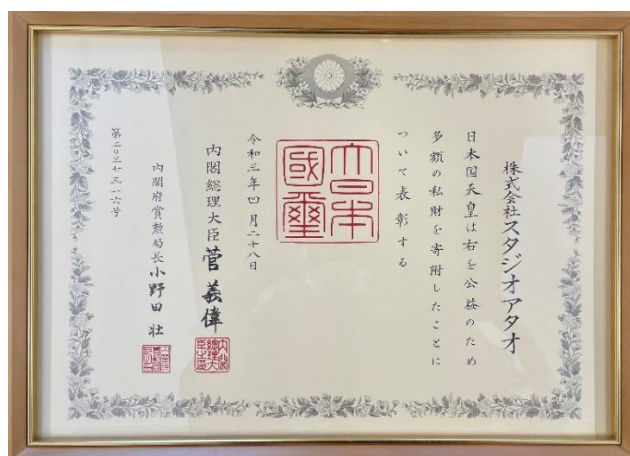 株式会社スタジオアタオ
日本国天皇は右を公益のため
多額の私財を寄附したことに
ついて表彰する
大日本
國璽
令和三年四月二十八日
内閣総理大臣 菅義偉
内閣府賞勲局長 小野田壮